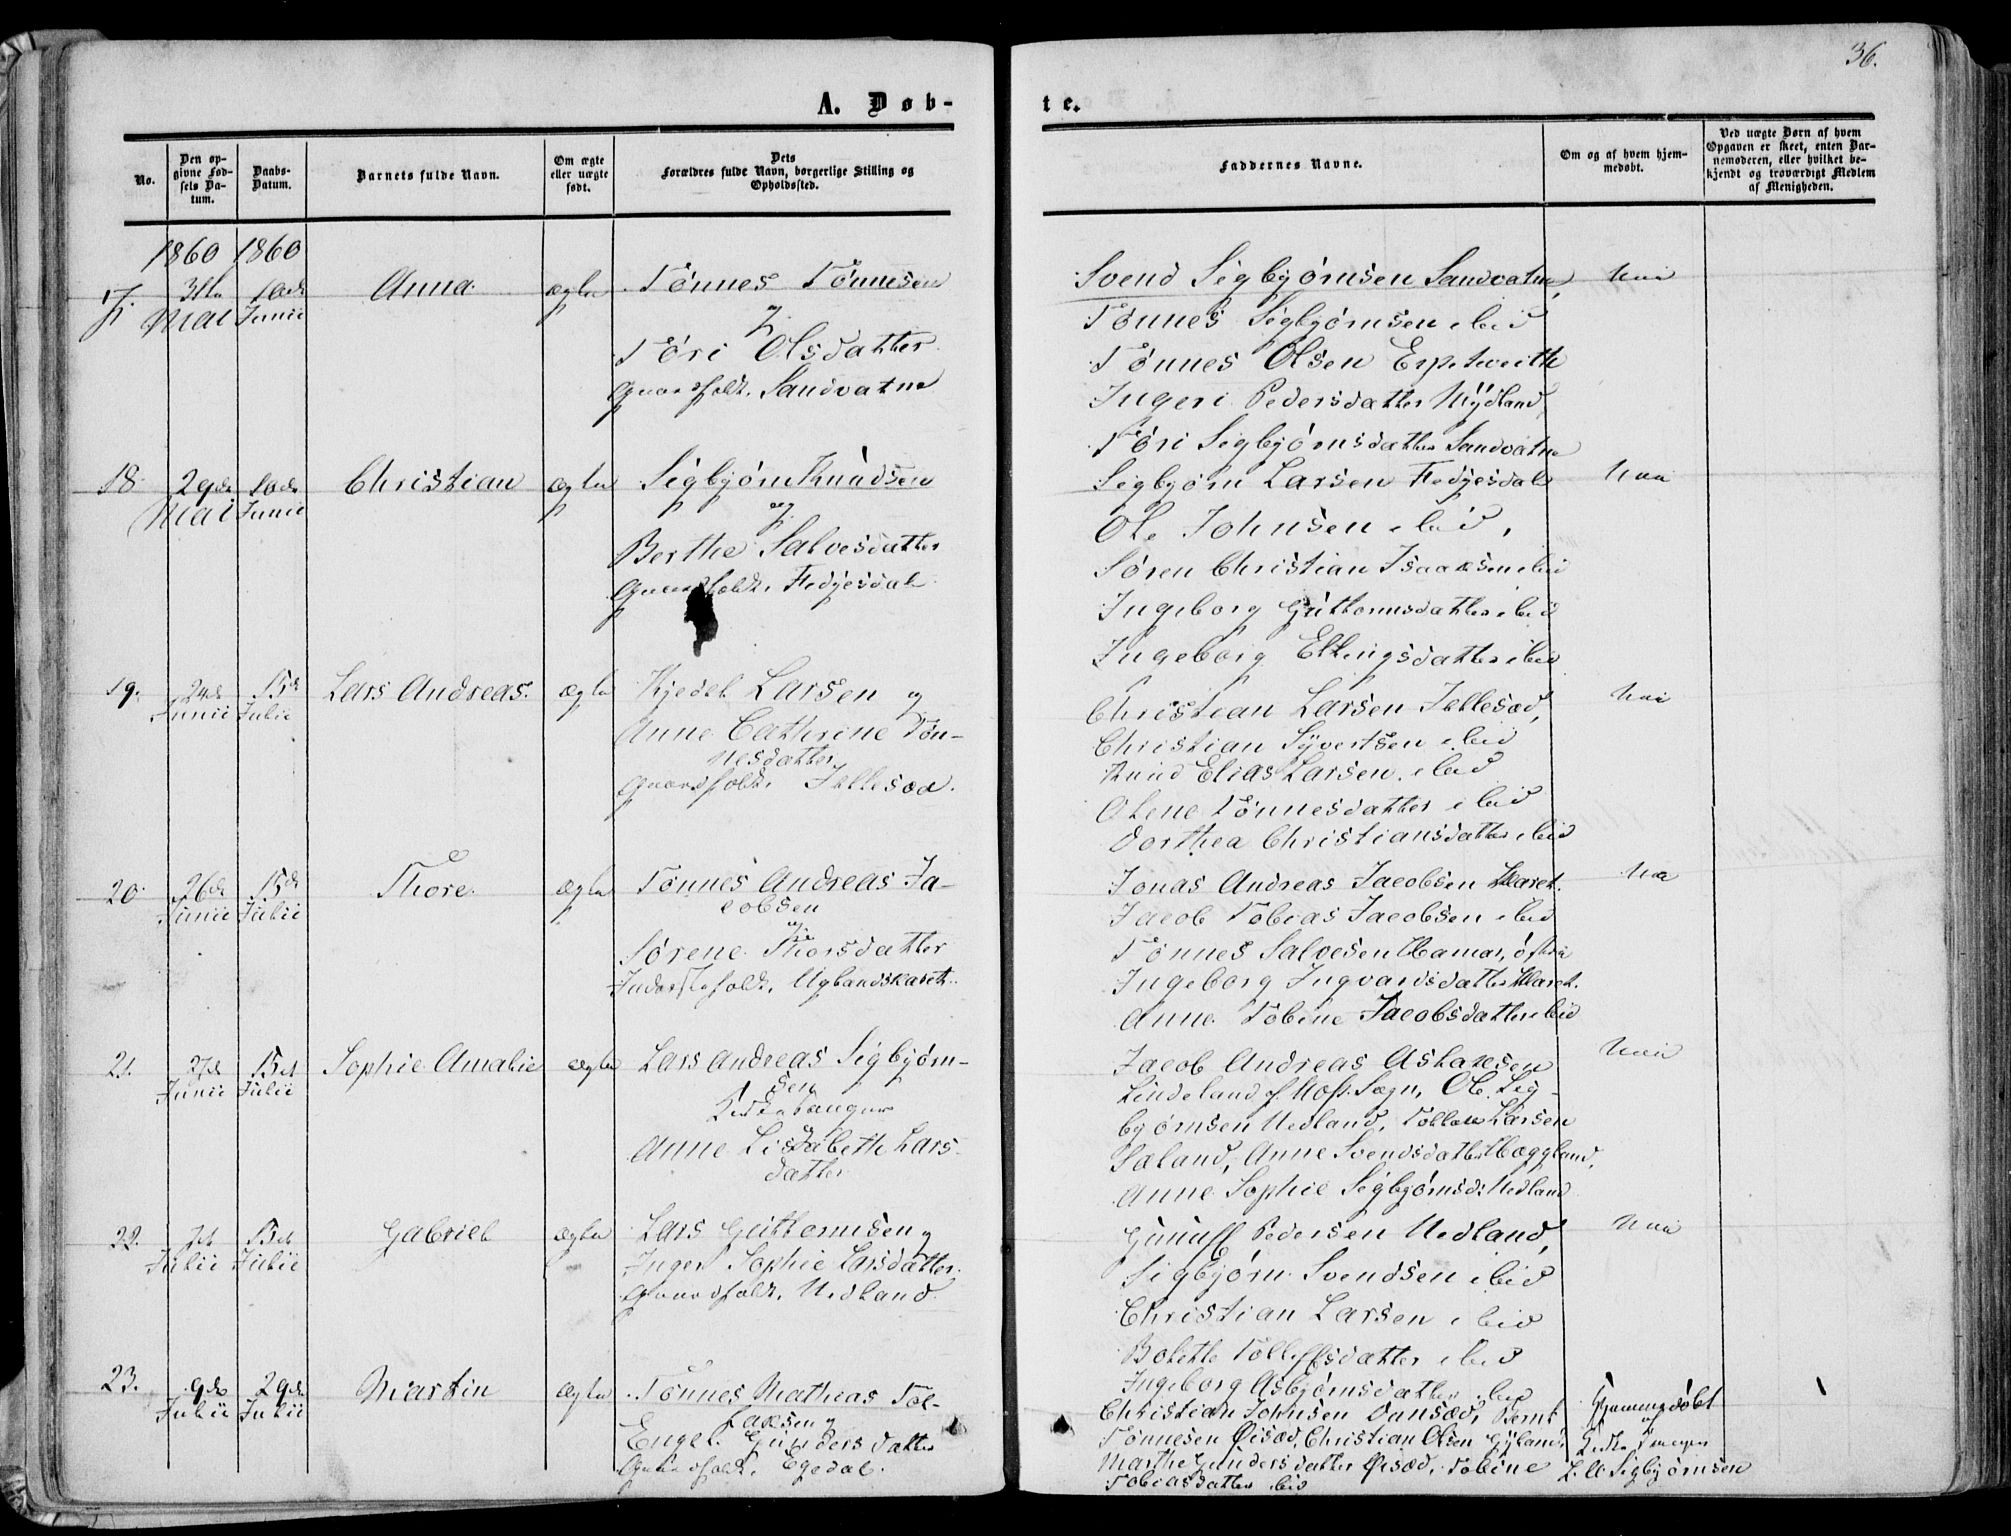 36.
A. Døb-
te.
No.
Den op-
givne Fød-
sels Da-
tum.
Daabs-
Datum.
Barnets fulde Navn.
Om ægte
eller uægte
født.
Dets
Forældres fulde Navn, borgerlige Stilling og
Opholdssted.
Faddernes Navne.
Om og af hvem hjem-
medøbt.
Ved uægte Børn af hvem
Opgaven er skeet, enten Bar-
nemoderen, eller hvilket be-
kjendt og troværdigt Medlem
af Menigheden.
1860 1860
17.
31te
Mai
10de
Junii
Anna.
ægte
Tønnes Tønnesen
og
Tøri Olsdatter
Gaardfolk. Sandvatne
Svend Sigbjørnsen Sandvatne,
Tønnes Sigbjørnsen ibid
Tønnes Olsen Erpetveith
Ingeri Pedersdatter Nÿdland,
Tøri Sigbjørnsdatter Sandvatne
Nei
18.
29de
Mai
10de
Junii
Christian
ægte
Sigbjørn Knudsen
og
Berthe Salvesdatter
Gaardfolk. Fedjesdal
Sigbjørn Larsen Fedjesdal
Ole Johnsen ibid,
Søren Christian Isaaksen ibid
Ingeborg Guttormsdatter ibid
Ingeborg Ellingsdatter ibid
Nei
19.
24de
Junii
15de
Julii
Lars Andreas.
ægte
Kjedel Larsen og
Anne Cathrine Tøn-
nesdatter
Gaardfolk. Jellesæd.
Christian Larsen Jellesæd,
Christian Sÿvertsen ibid
Knud Elias Larsen ibid
Olene Tønnesdatter ibid
Dorthea Christiansdatter ibid
Nei
20.
26de
Junii
15de
Julii
Thore.
ægte
Tønnes Andreas Ja-
cobsen
og
Sørene Thorsdatter
Inderstefolk, Uglandskaret.
Jonas Andreas Jacobsen Skaret.
Jacob Tobias Jacobsen ibid
Tønnes Salvesen Hamar, østre
Ingeborg Ingvardsdatter Skaret.
Anne Tobine Jacobsdatter ibid
Nei
21.
27de
Junii
15de
Julii
Sophie Amalie
ægte
Lars Andreas Sigbjørn-
sen
Kirkesanger
Anne Lisabeth Lars-
datter
Jacob Andreas Aslaksen
Lindeland af Moss Sogn, Ole Sig-
bjørnsen Nedland, Tollak Larsen
Sæland, Anne Svendsdatter Hægglund,
Anne Sophie Sigbjørnsd: Nedland
Nei
22.
7de
Julii
15de
Julii
Gabriel
ægte
Lars Guttormsen og
Inger Sophie Larsdatter.
Gaardfolk. Nedland.
Gunulf Pedersen Nedland,
Sigbjørn Svendsen ibid
Christian Larsen ibid
Bolette Tollefsdatter ibid
Ingeborg Asbjørnsdatter ibid
Nei
23.
9de
Julii
29de
Julii
Martin
ægte
Tønnes Mathias Tol-
laksen og
Engel Gundersdatter
Gaardfolk. Egedal.
Christian Johnsen Dunsæd, Bernt
Tønnesen Øisæd, Christian Olsen Gyland,
Marthe Gundersdatter Øisæd, Tobine
Tobiasdatter ibid
Hjemmedøbt
af
Kirkesanger
L. A. Sigbjørnsen